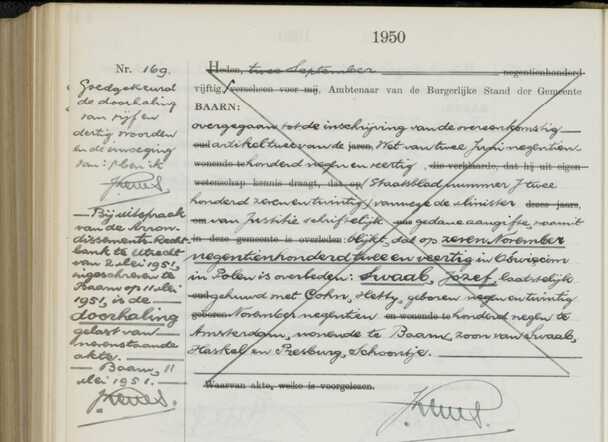 1950
Nr. 169.
Goedgekeurd
de doorhaling
van vijf en
dertig woorden
en de invoeging
van: / ben ik
Heden, twee September negentienhonderd
vijftig, / verscheen voor mij, Ambtenaar van de Burgerlijke Stand der Gemeente
BAARN:
overgegaan tot de inschrijving van de overeenkomstig
oud artikel twee van de jaren, Wet van twee Juni negentien
wonende te honderd negen en veertig, die verklaarde, dat hij uit eigen
wetenschap kennis draagt, dat op / Staatsblad nummer J twee
honderd zeven en twintig / vanwege de Minister dezes jaars,
om van Justitie schriftelijk uur gedane aangifte, waaruit
in deze gemeente is overleden: blijkt, dat op zeven November
negentienhonderd twee en veertig in Oswiecim
in Polen is overleden: Swaab, Jozef, laatstelijk
oud gehuwd met Cohn, Hetty, geboren negen en twintig
geboren November negentien en wonende te honderd negen te
Amsterdam, wonende te Baarn, zoon van Swaab,
Haskel en Presburg, Schoontje.
Waarvan akte, welke is voorgelezen.
Bij uitspraak
van de Arron-
dissements-Recht-
bank te Utrecht
van 2 Mei 1951,
ingeschreven te
Baarn op 11 Mei
1951, is de
doorhaling
gelast van
nevenstaande
akte.
Baarn, 11
Mei 1951.